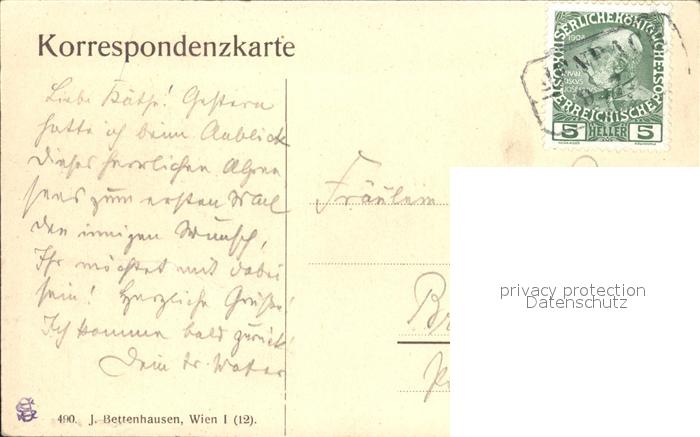 Korrespondenzkarte
Liebe Käthe! Gestern
hatte ich beim Anblick
dieses herrlichen Alpen
sees zum ersten Mal
den innigen Wunsch,
Ihr möchtet mit dabei
sein! Herzliche Grüße!
Ich komme bald zurück!
Dein tr. Vater
490. J. Bettenhausen, Wien I (12).
KAISERLICHE KÖNIGLICHE ÖSTERREICHISCHE POST
1908
5 HELLER 5
Fräulein
Br
privacy protection
Datenschutz